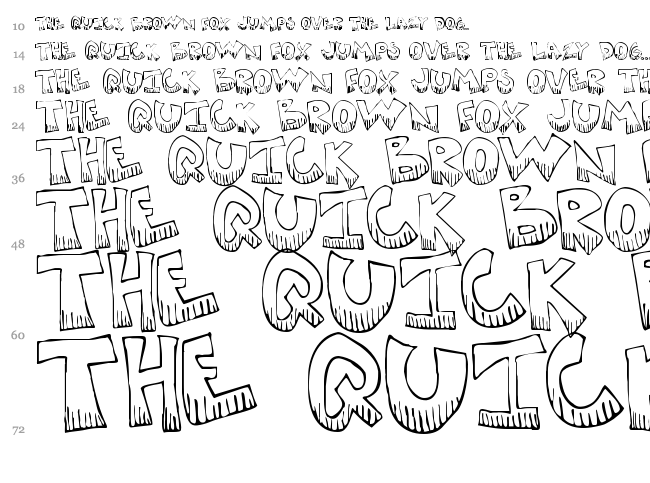 10 THE QUICK BROWN FOX JUMPS OVER THE LAZY DOG.
14 THE QUICK BROWN FOX JUMPS OVER THE LAZY DOG...
18 THE QUICK BROWN FOX JUMPS OVER TH
24 THE QUICK BROWN FOX JUMP
36 THE QUICK BROWN
48 THE QUICK BRO
60 THE QUICK
72 THE QUICK